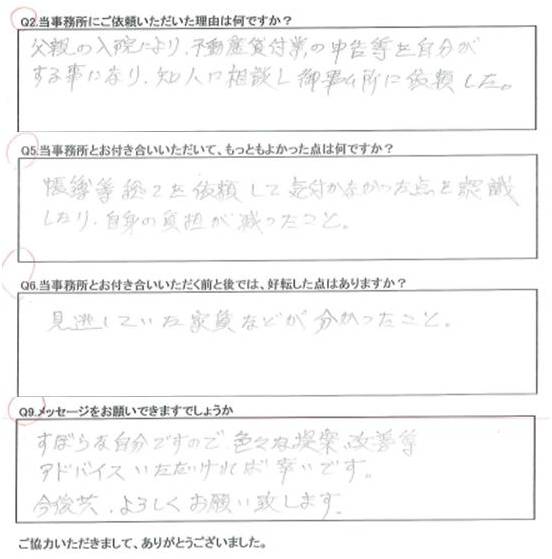 Q2.当事務所にご依頼いただいた理由は何ですか？
父親の入院により、不動産貸付業の申告等を自分が
する事になり、知人に相談し御事ム所に依頼した。
Q5.当事務所とお付き合いいただいて、もっともよかった点は何ですか？
帳簿等総てを依頼して気付かなかった点を認識
したり、自身の負担が減ったこと。
Q6.当事務所とお付き合いいただく前と後では、好転した点はありますか？
見逃していた家賃などが分かったこと。
Q9.メッセージをお願いできますでしょうか
ずぼらな自分ですので色々な提案、改善等
アドバイスいただければ幸いです。
今後共、よろしくお願い致します。
ご協力いただきまして、ありがとうございました。